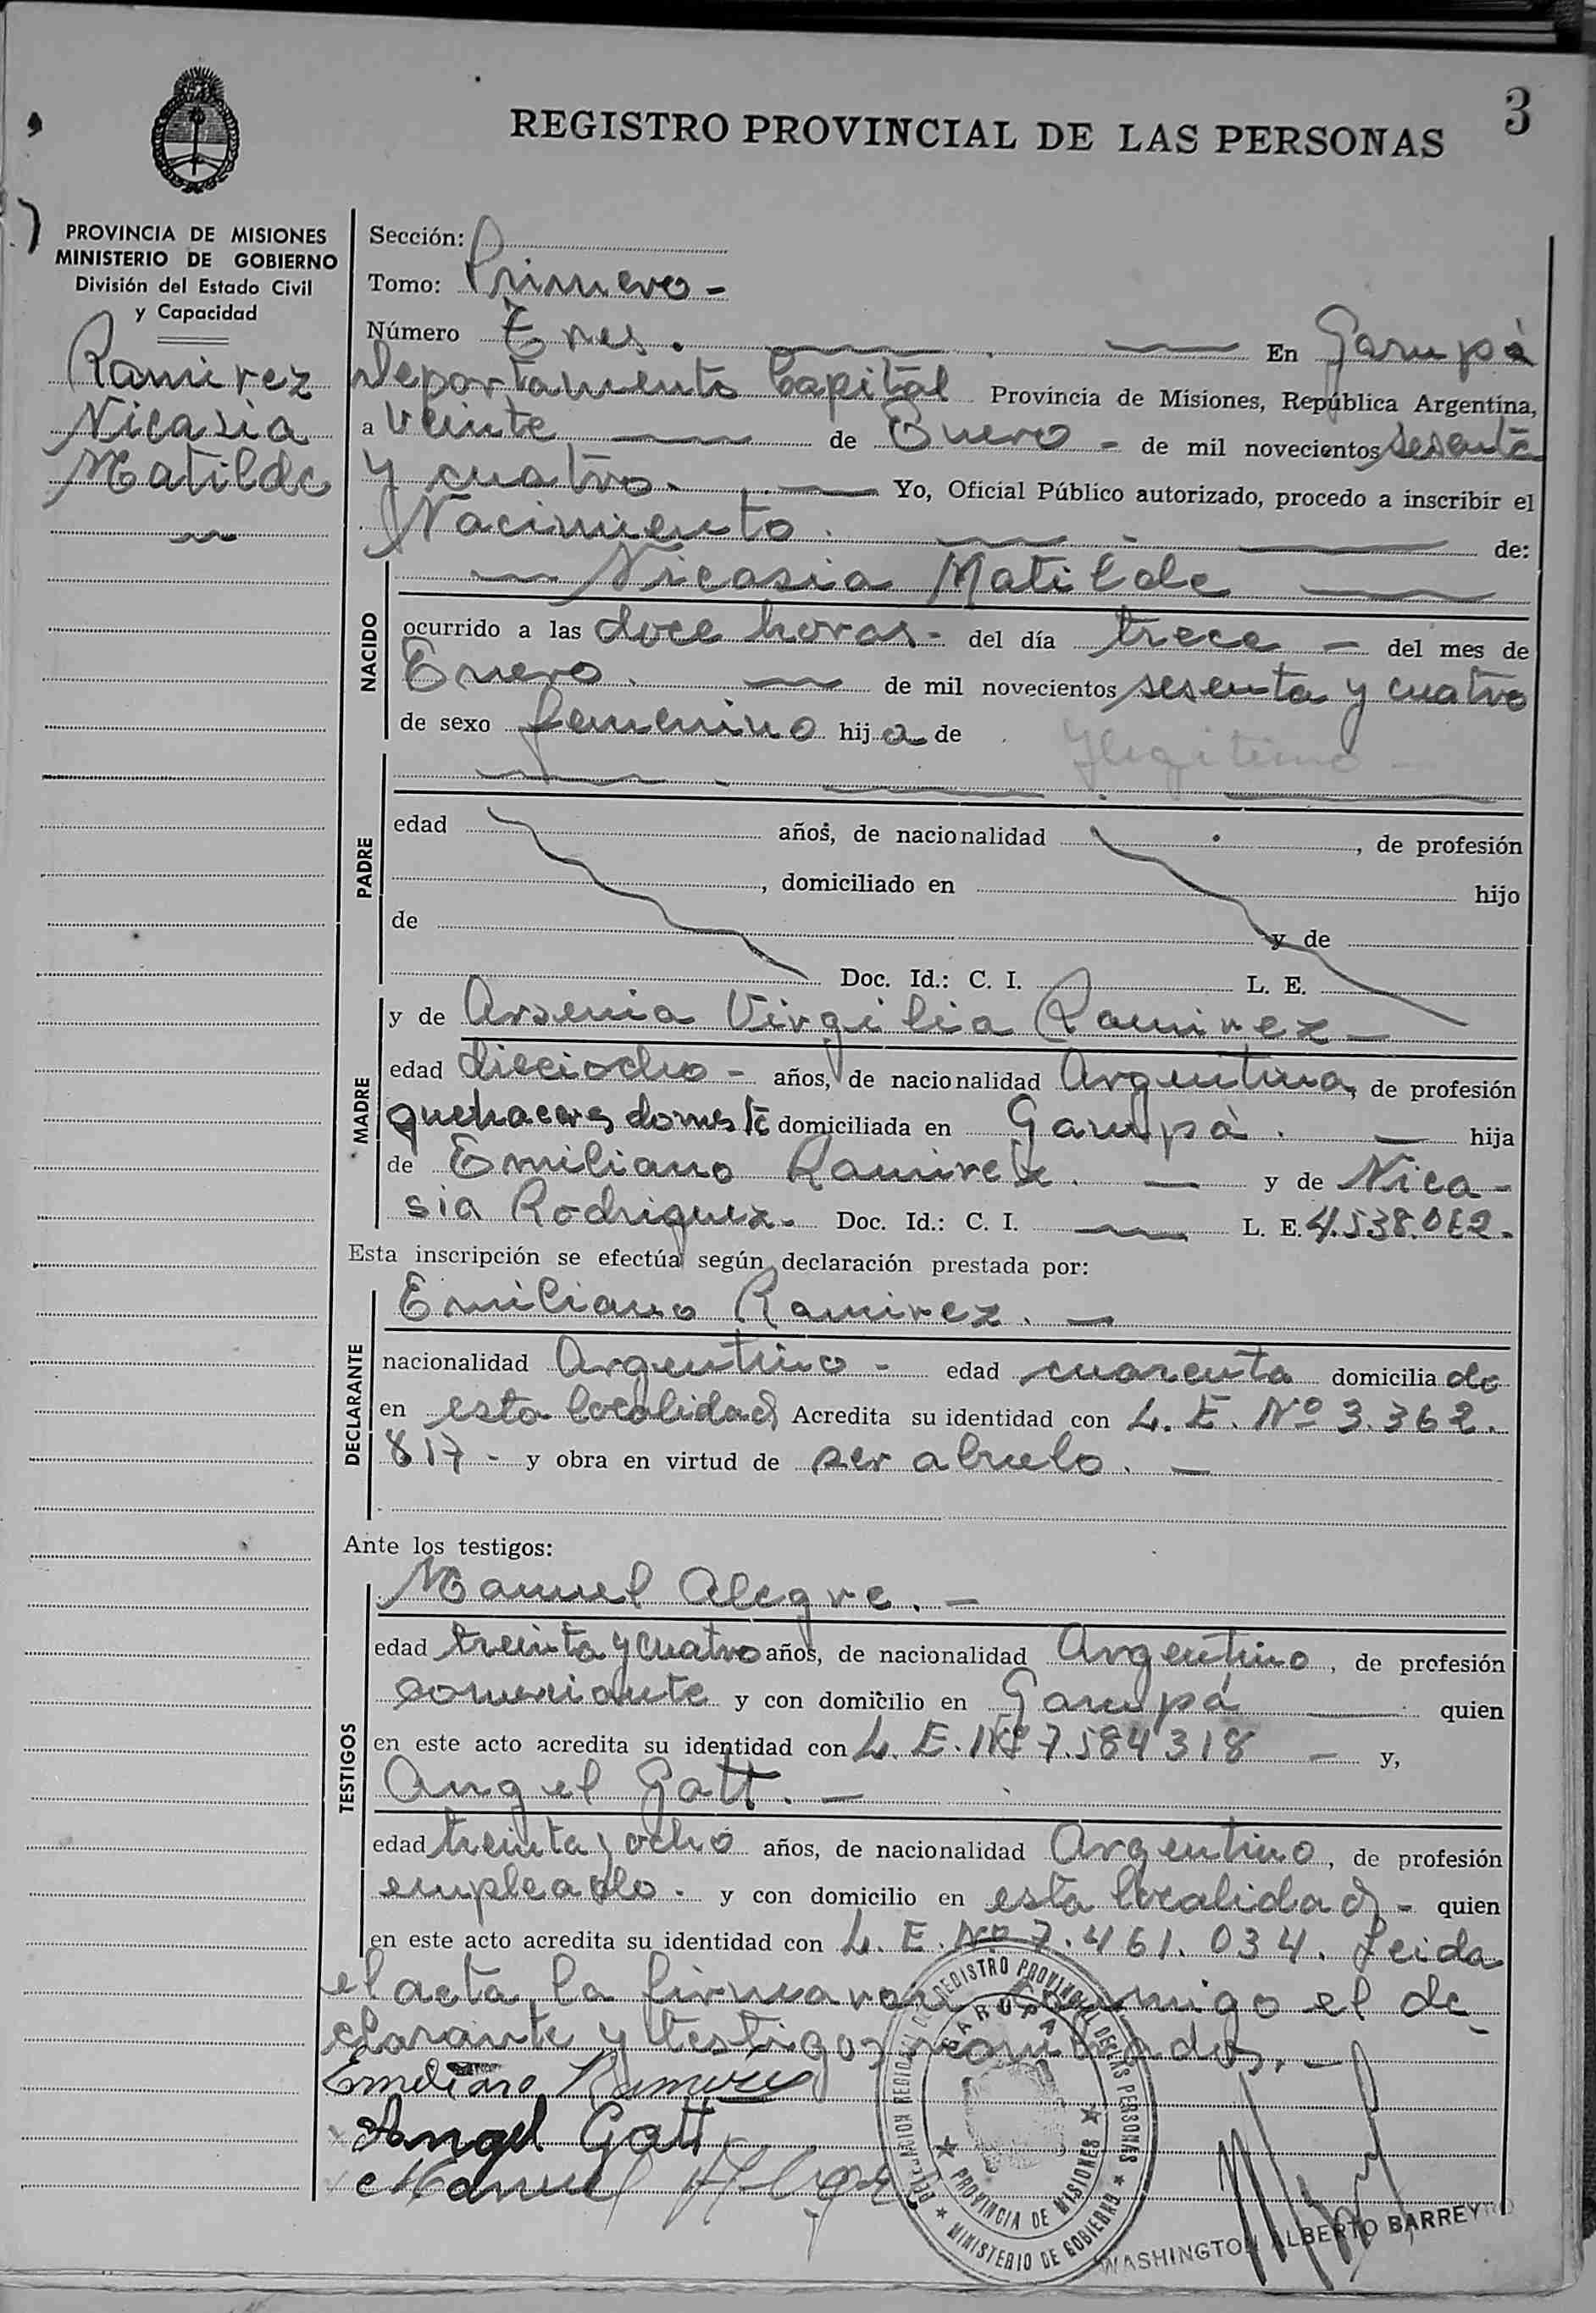 3
REGISTRO PROVINCIAL DE LAS PERSONAS
PROVINCIA DE MISIONES
MINISTERIO DE GOBIERNO
División del Estado Civil
y Capacidad
Ramirez
Nicasia
Matilde
Sección:
Tomo: Primero -
Número Tres. En Garupá
Departamento Capital Provincia de Misiones, República Argentina,
a veinte de Enero - de mil novecientos sesenta
y cuatro. Yo, Oficial Público autorizado, procedo a inscribir el
Nacimiento. de:
NACIDO
Nicasia Matilde
ocurrido a las doce horas - del día trece - del mes de
Enero. de mil novecientos sesenta y cuatro
de sexo femenino hija de Ilegitimo -
PADRE
edad años, de nacionalidad , de profesión
, domiciliado en hijo
de y de
Doc. Id.: C. I. L. E.
MADRE
y de Arsenia Virgilia Ramirez -
edad dieciocho - años, de nacionalidad Argentina, de profesión
quehaceres domestc domiciliada en Garupá. hija
de Emiliano Ramirez. y de Nica-
sia Rodriguez. Doc. Id.: C. I. L. E. 4.538.062.
Esta inscripción se efectúa según declaración prestada por:
DECLARANTE
Emiliano Ramirez. -
nacionalidad Argentino - edad cuarenta domiciliado
en esta localidad Acredita su identidad con L. E. Nº 3.362.
817 - y obra en virtud de ser abuelo. -
Ante los testigos:
TESTIGOS
Manuel Alegre. -
edad treinta y cuatro años, de nacionalidad Argentino, de profesión
comerciante y con domicilio en Garupá quien
en este acto acredita su identidad con L. E. Nº 7.584318 - y,
Angel Gatt. -
edad treinta y ocho años, de nacionalidad Argentino, de profesión
empleado. y con domicilio en esta localidad - quien
en este acto acredita su identidad con L. E. Nº 7.461.034. Leida
el acta, la firmaron conmigo el de-
clarante y testigos nombrados. -
Emiliano Ramirez
Angel Gatt
Manuel Alegre
DELEGACION REGIONAL DEL REGISTRO PROVINCIAL DE LAS PERSONAS
GARUPA
PROVINCIA DE MISIONES
MINISTERIO DE GOBIERNO
WASHINGTON ALBERTO BARREYRO